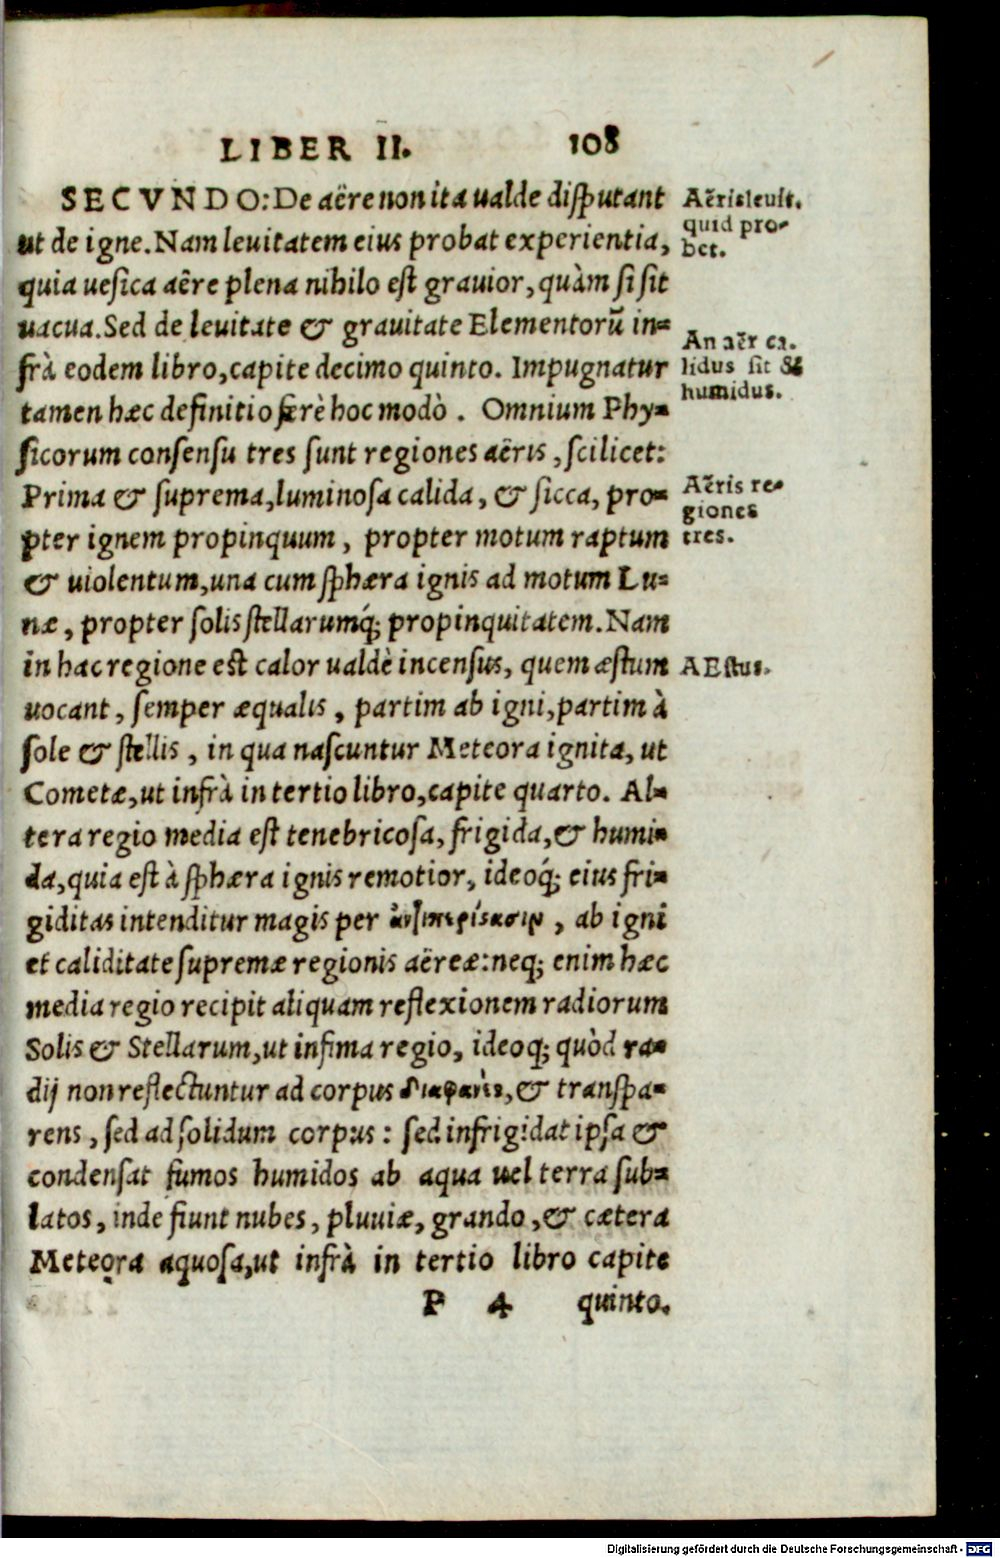 LIBER II. 108
SECVNDO: De aëre non ita ualde disputant
ut de igne. Nam leuitatem eius probat experientia,
quia uesica aëre plena nihilo est grauior, quàm si sit
uacua. Sed de leuitate & grauitate Elementorũ in-
frà eodem libro, capite decimo quinto. Impugnatur
tamen hæc definitio ferè hoc modò. Omnium Phy-
sicorum consensu tres sunt regiones aëris, scilicet:
Prima & suprema, luminosa calida, & sicca, pro-
pter ignem propinquum, propter motum raptum
& uiolentum, una cum sphæra ignis ad motum Lu-
næ, propter solis stellarumq́; propinquitatem. Nam
in hac regione est calor ualdè incensus, quem æstum
uocant, semper æqualis, partim ab igni, partim à
sole & stellis, in qua nascuntur Meteora ignita, ut
Cometæ, ut infrà in tertio libro, capite quarto. Al-
tera regio media est tenebricosa, frigida, & humi-
da, quia est à sphæra ignis remotior, ideoq́; eius fri-
giditas intenditur magis per ἀντιπερίστασιν, ab igni
et caliditate supremæ regionis aëreæ: neq; enim hæc
media regio recipit aliquam reflexionem radiorum
Solis & Stellarum, ut infima regio, ideoq; quòd ra-
dij non reflectuntur ad corpus διαφανὲς, & transpa-
rens, sed ad solidum corpus: sed infrigidat ipsa &
condensat fumos humidos ab aqua uel terra sub-
latos, inde fiunt nubes, pluuiæ, grando, & cætera
Meteora aquosa, ut infrà in tertio libro capite
P 4 quinto.
Aëris leuit.
quid pro-
bet.
An aër ca-
lidus sit &
humidus.
Aëris re-
giones
tres.
AEstus.
Digitalisierung gefördert durch die Deutsche Forschungsgemeinschaft - DFG